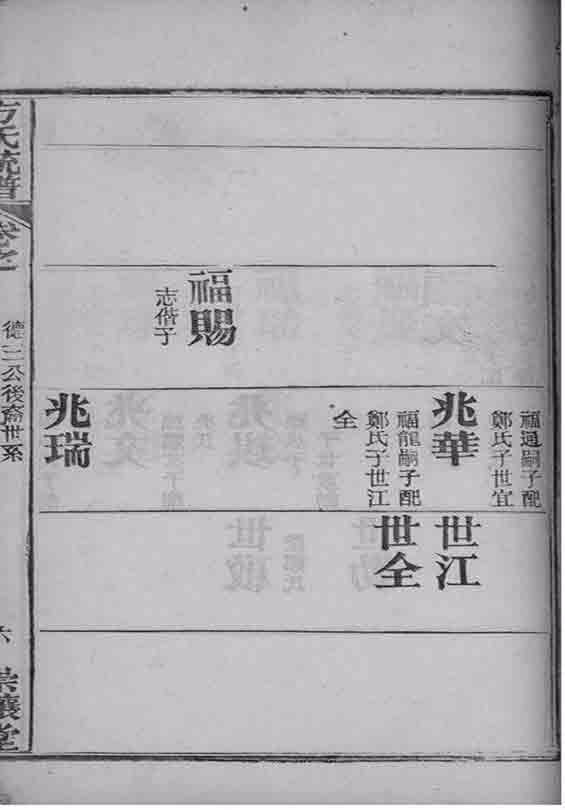 福賜
志偕子
福通嗣子配
鄭氏子世宜
兆華
福龍嗣子配
鄭氏子世江
全
兆瑞
世江
世全
方氏統譜
卷之
德三公後裔世系
六
堂